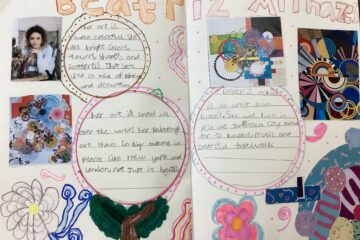 Beatriz Milhaze
her art is
super colourful She
use bright colors,
flowers shapes, and
patterns that look
like a mix of
and decorating
her art is loved all
over the world! her Paintings
are shown in big museums in
places like New york and
London, not just in brazil
is an artist from
brazil. She was born in
Rio de Janeiro a city known
for its beaches, music and
colorful